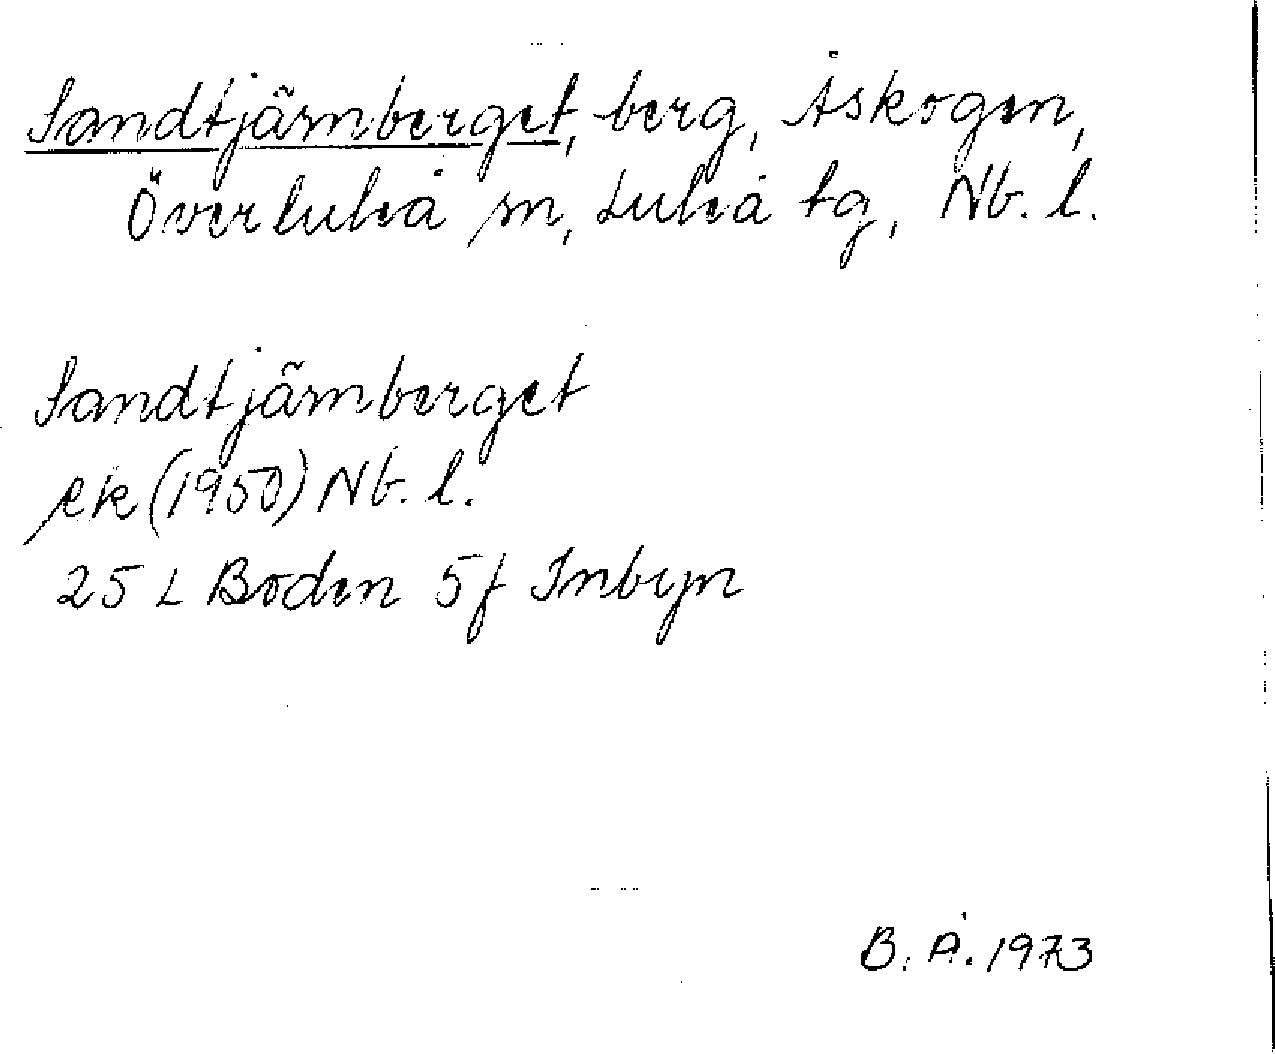 Sandtjärnberget, berg, Åskogen,
Överluleå sn, Luleå tg, Nb. l.
Sandtjärnberget
ek (1950) Nb. l.
25 L Boden 5f Inbyn
B. Å. 1973